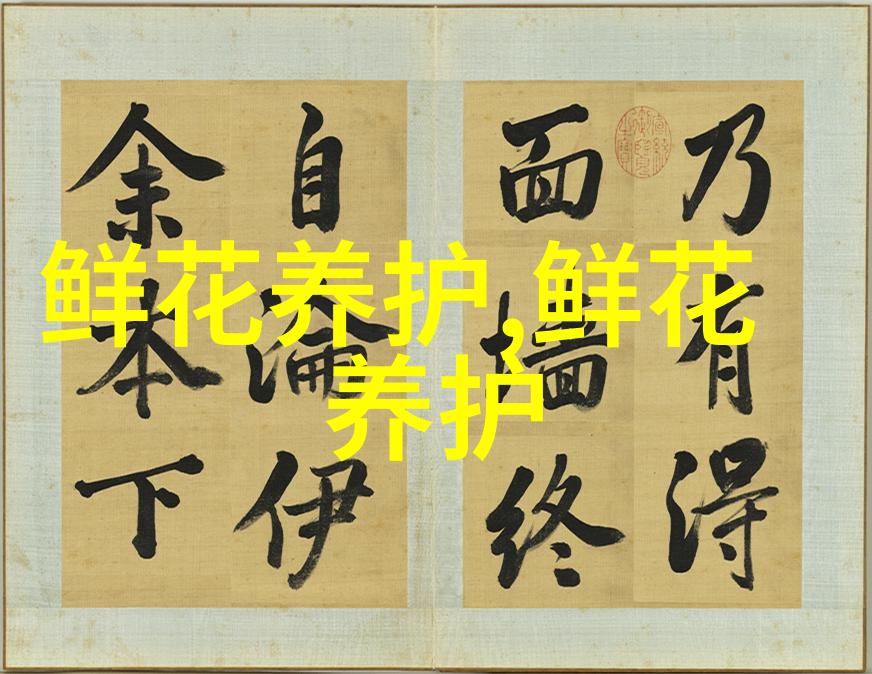 鲜花养护,鲜花
养护
乃有得
面墙终
自淪伊
余本下